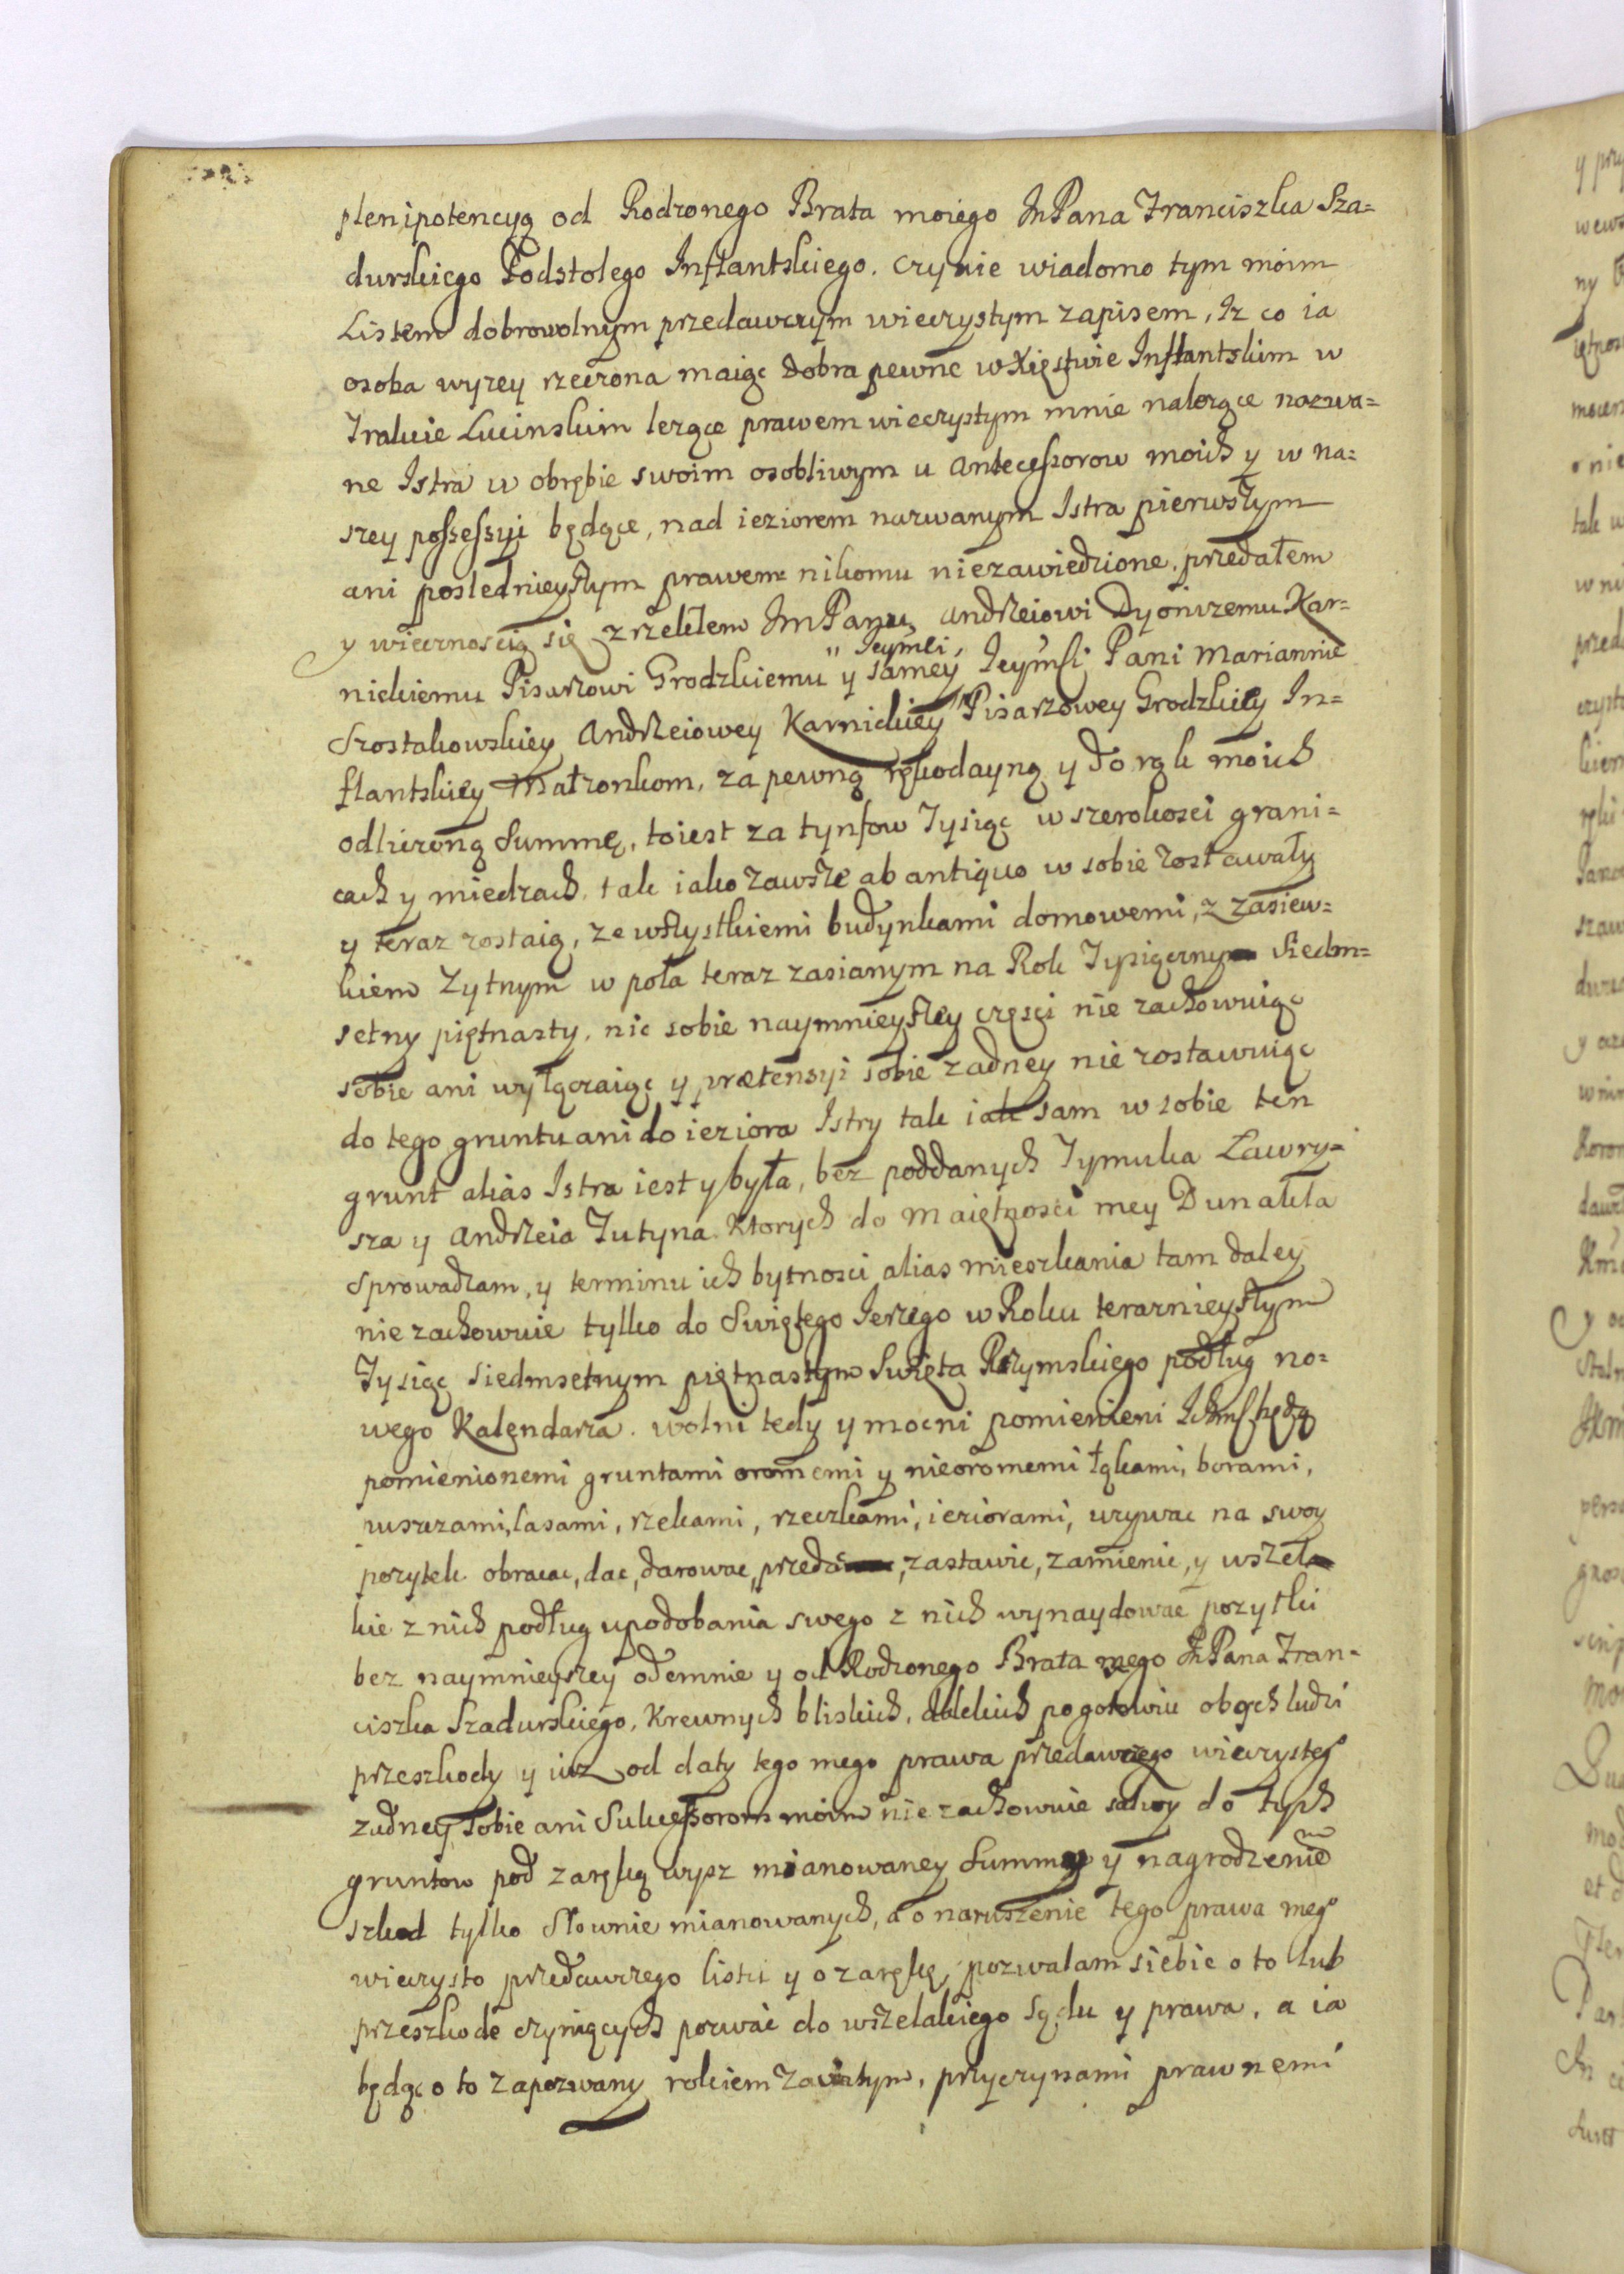 plenipotencyą od Rodzonego Brata moiego JmPana Franciszka Sza=
durskiego Podstolego Inflantskiego. Czynie wiadomo tym moim
Listem dobrowolnym przedawczym wieczystym zapisem, Iz co ia
osoba wyzey rzeczona maiąc Dobra pewne w Xięstwie Inflantskim w
Trakcie Lucinskim lezące prawem wieczystym mnie nalezące nazwa=
ne Istra w obrębie swoim osobliwym u Antecessorow moich y w na=
szey possessyi będące, nad ieziorem nazwanym Istra pierwszym
ani poslednieyszym prawem nikomu niezawiedzione, przedałem
y wiecznoscią się zrzekłem JmPanu Andrzeiowi Dyonizemu Kar=
nickiemu Pisarzowi Grodzkiemu " Jeymści, y samey Jeymści Pani Mariannie
Szostakowskiey Andrzeiowey Karnickiey Pisarzowey Grodzkiey In=
flantskiey Małzonkom, za pewną rękodayną y do rąk moich
odliczoną Summę, toiest za tynfow Tysiąc w szerokosci grani=
cach y miedzach, tak iako zawsze ab antiquo w sobie zostawały
y teraz zostaią, ze wszystkiemi budynkami domowemi, z zasiew=
kiem Zytnym w pola teraz zasianym na Rok Tysiączny Siedm=
setny piętnasty, nic sobie naymnieyszey częsci nie zachowuiąc
sobie ani wyłączaiąc y prætensyi sobie zadney nie zostawuiąc
do tego gruntu ani do ieziora Istry tak iak sam w sobie ten
grunt alias Istra iest y była, bez poddanych Tymuka Ławry=
sza y Andrzeia Jutyna Ktorych do Maiętnosci mey Dunakla
Sprowadzam, y terminu ich bytnosci alias mieszkania tam daley
nie zachowuie tylko do Swiętego Jerzego w Roku teraznieyszym
Tysiąc Siedmsetnym piętnastym Swięta Rzymskiego podług no=
wego Kalendarza. wolni tedy y mocni pomienieni Ichmsc będą
pomienionemi gruntami oromemi y nieoromemi łąkami, borami,
puszczami, lasami, rzekami, rzeczkami, ieziorami, uzywac na swoy
pozytek obracac, dac, darowac, przeda, zastawic, zamienic, y wszela
kie z nich podług upodobania swego z nich wynaydowac pozytki
bez naymnieyszey odemnie y od Rodzonego Brata mego JmPana Fran=
ciszka Szadurskiego, Krewnych bliskich, dalekich pogotowiu obcych ludzi
przeszkody y iuz od daty tego mego prawa przedawczego wieczysteg°
zadney sobie ani Sukcessorom moim nie zachowuie salwy do tych
gruntow pod zaręką wysz mianowaney Summy y nagrodzeniem
szkod tylko Słownie mianowanych, a o naruszenie tego prawa meg°
wieczysto przedawczego listu y o zarękę pozwalam siebie o to lub
przeszkode czyniących pozwac do wszelakiego sądu y prawa, a ia
będąc o to zapozwany rokiem zawitym, przyczynami prawnemi